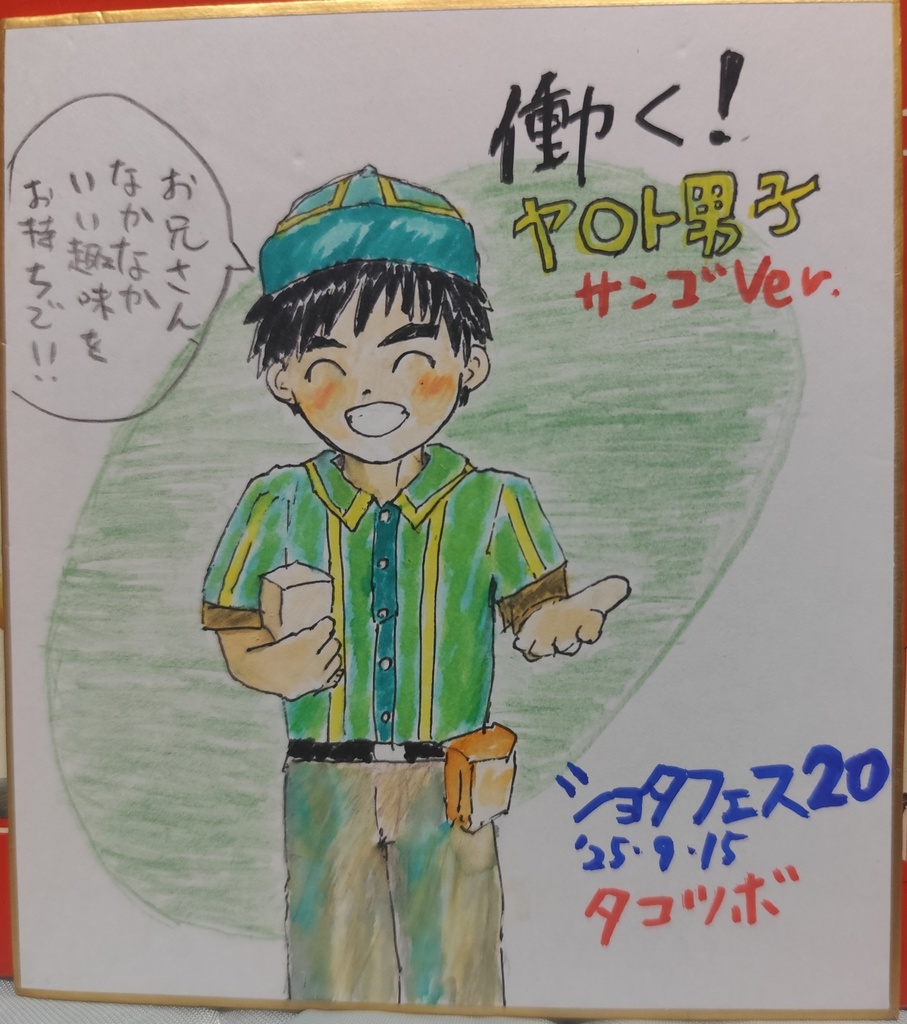 働く!
ヤ〇ト男子
サンゴVer.
お兄さん
なかなか
いい趣味を
お持ちで!!
ショタフェス20
'25.9.15
タコツボ